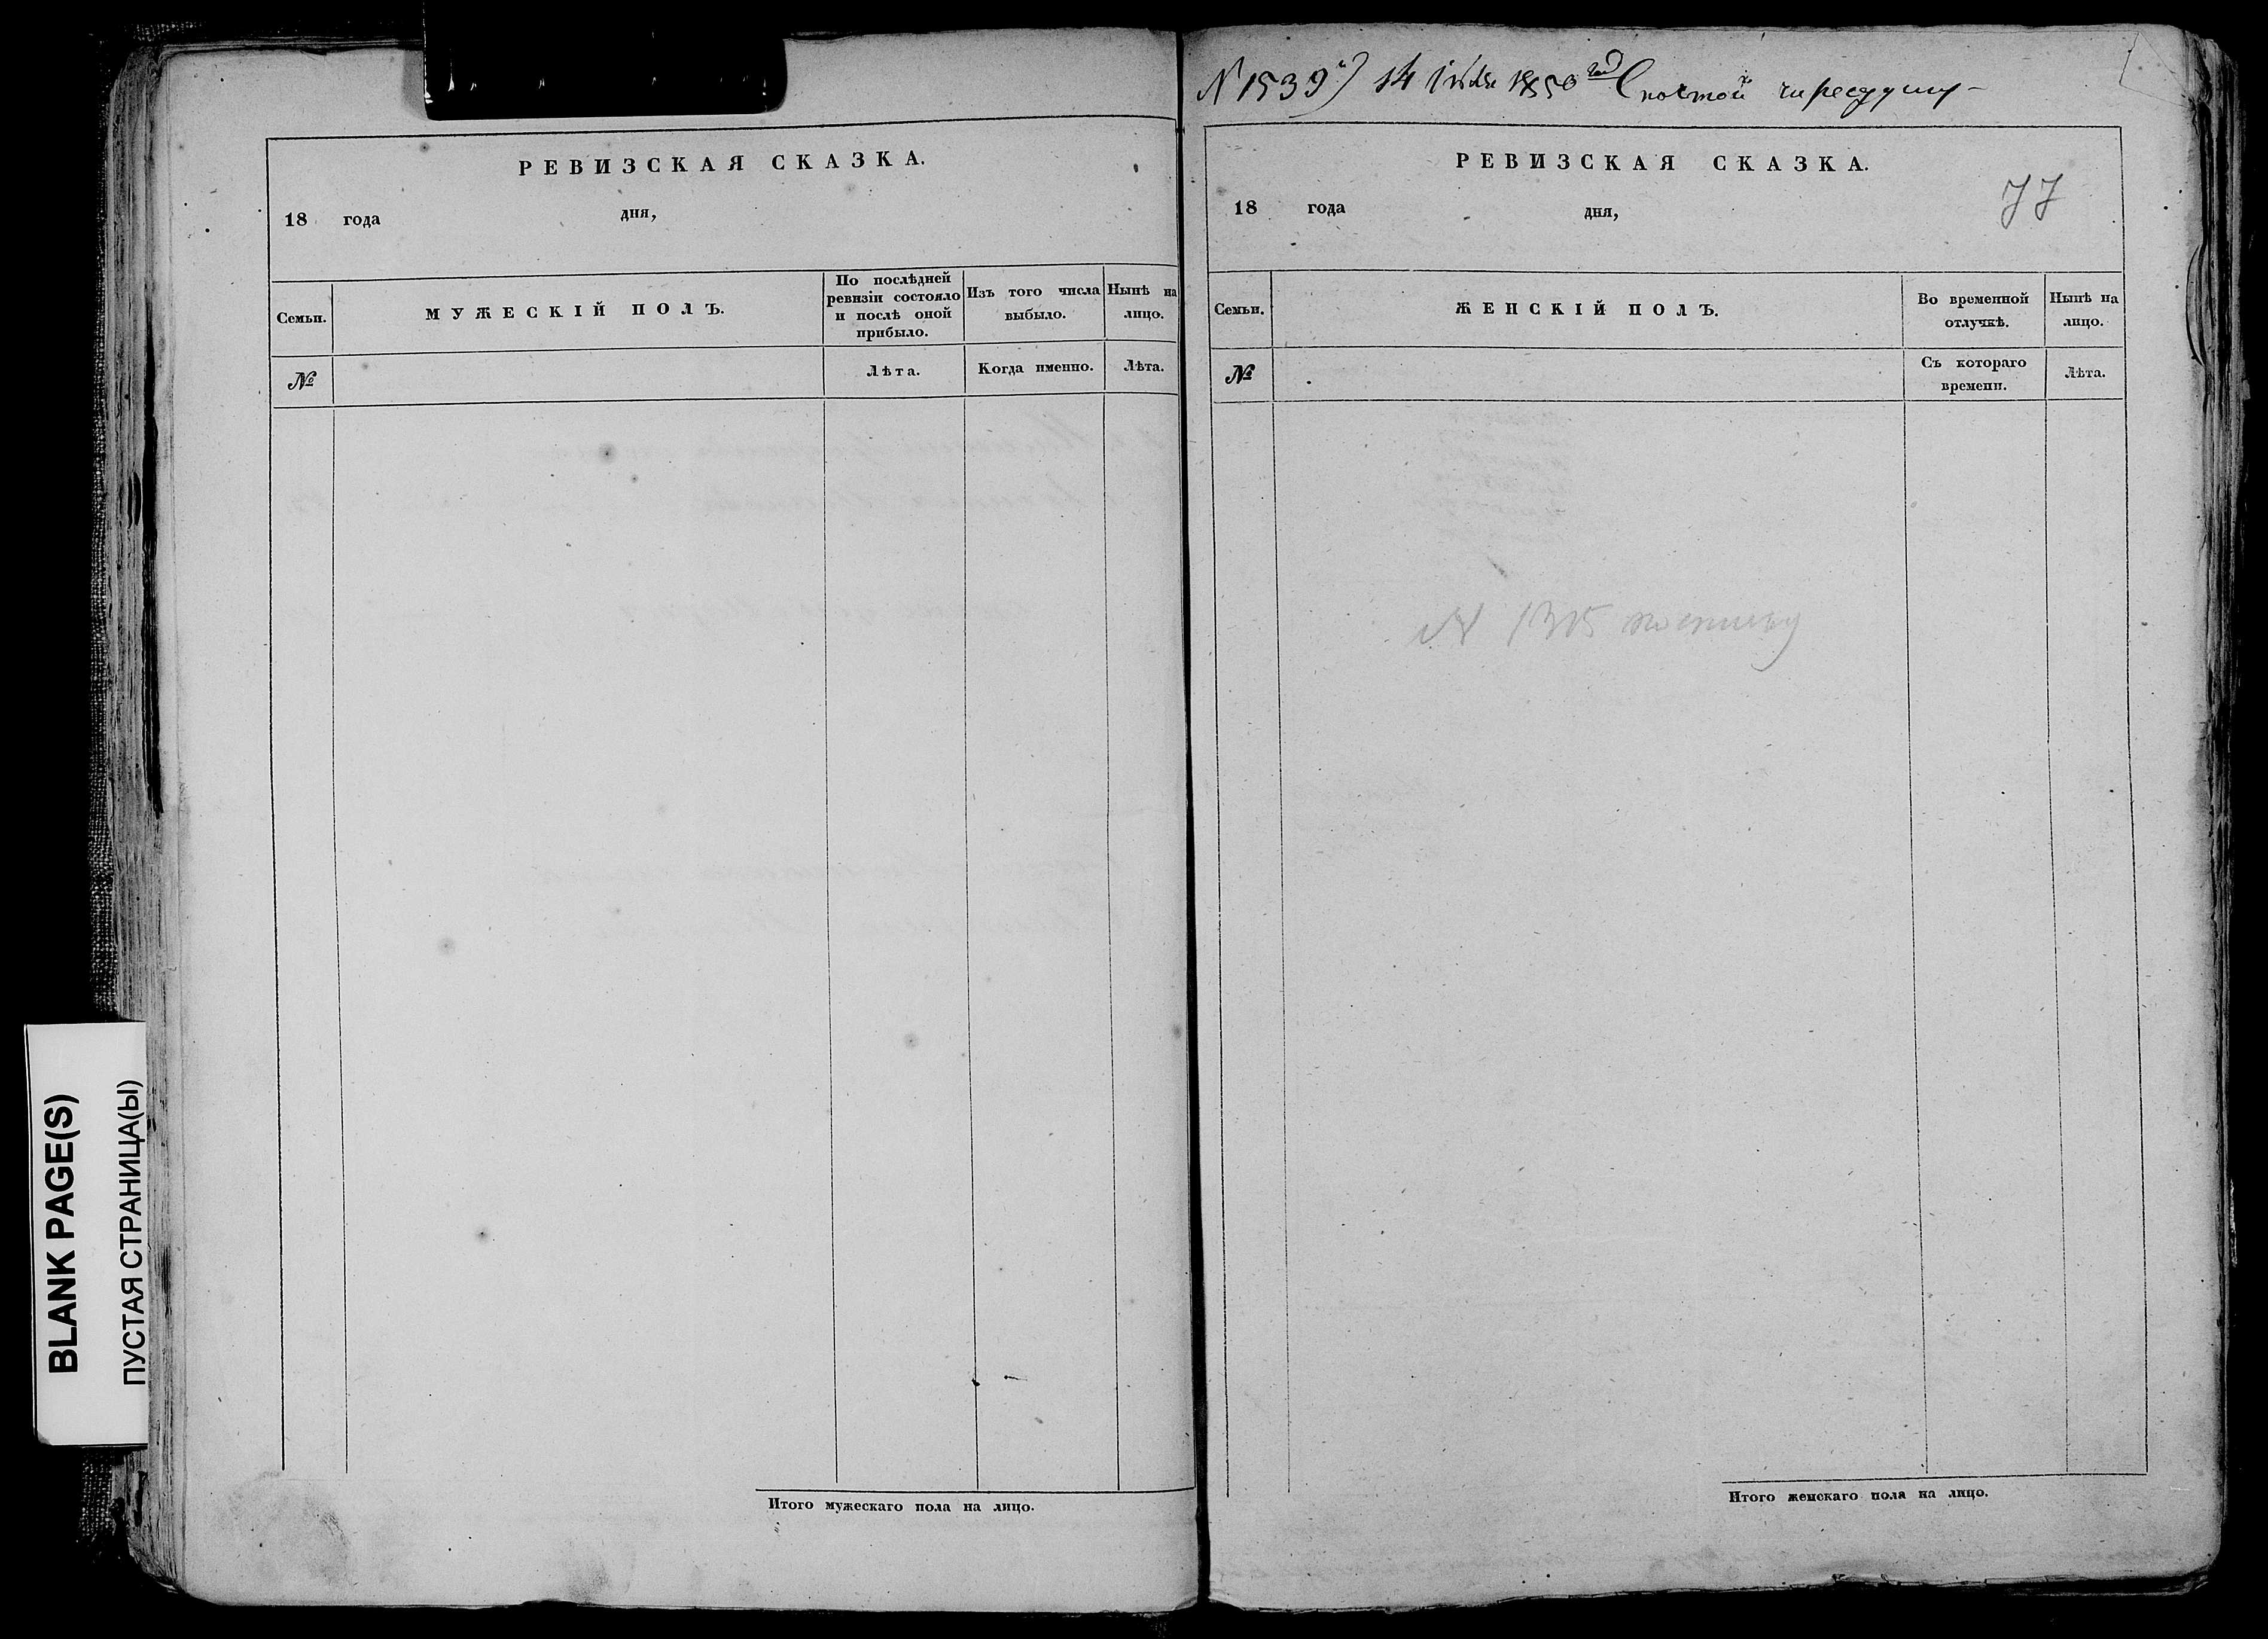 РЕВИЗСКАЯ СКАЗКА.
18 года дня,
Семьи.
МУЖЕСКІЙ ПОЛЪ.
По послѣдней ревизіи состояло и послѣ оной прибыло.
Изъ того числа выбыло.
Нынѣ на лицо.
№
Лѣта.
Когда именно.
Лѣта.
Итого мужескаго пола на лицо.
BLANK PAGE(S)
ПУСТАЯ СТРАНИЦА(Ы)
N 1539) 14 1850 год С почтой
РЕВИЗСКАЯ СКАЗКА.
77
18 года дня,
Семьи.
ЖЕНСКІЙ ПОЛЪ.
Во временной отлучкѣ.
Нынѣ на лицо.
№
Съ котораго времени.
Лѣта.
№ 1315
Итого женскаго пола на лицо.